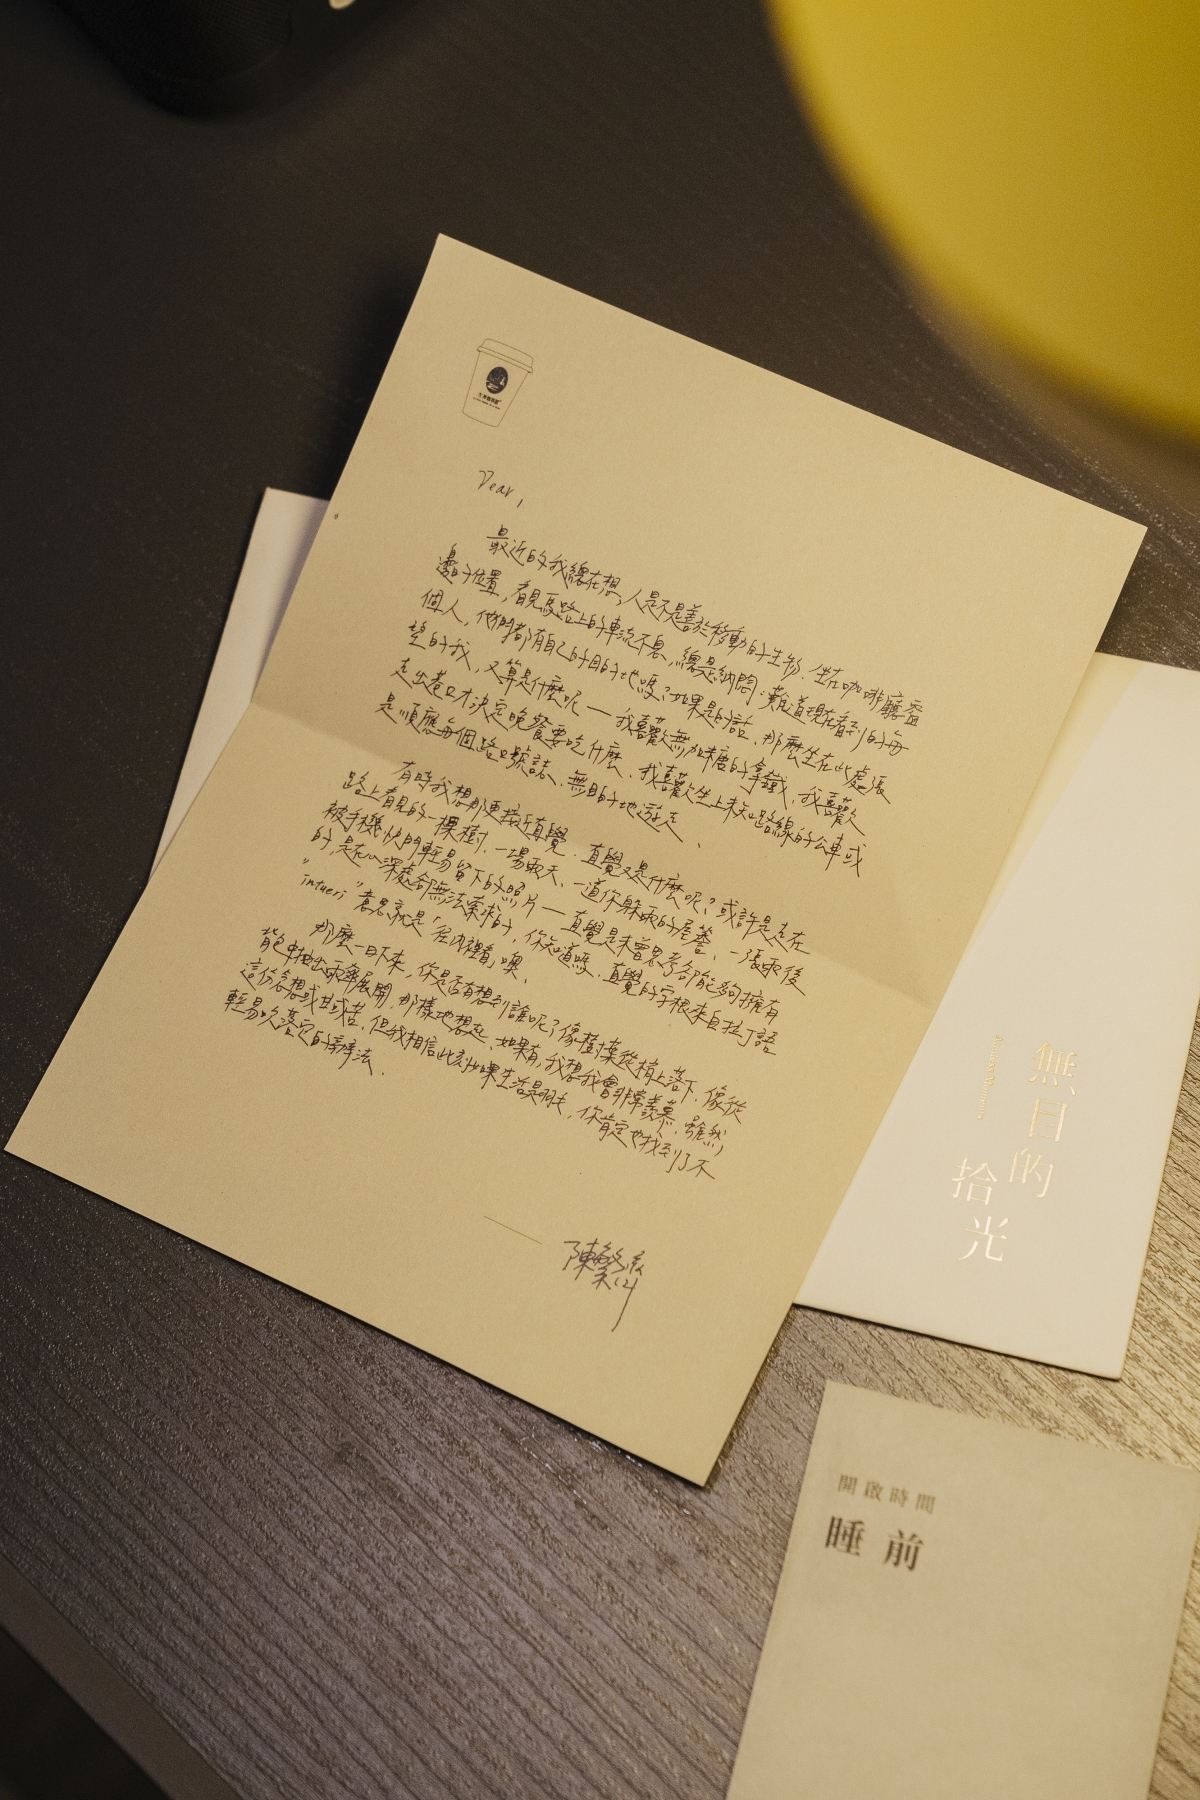 Dear,
最近的我總在想，人是不是善於移動的生物．坐在咖啡廳窗
邊的位置，看見馬路上的車流不息、總是納悶：難道現在看到的每
個人，他們都有自己的目的地嗎？如果是的話、那麼坐在此處張
望的我，又算是什麼呢 — 我喜歡無加糖的拿鐵、我喜歡
走出巷口才決定晚餐要吃什麼．我喜歡坐上未知路線的公車或
是順應每個路口號誌、無目的地遊走、
有時我想那更接近直覺．直覺又是什麼呢？或許是走在
路上看見的一棵樹、一場雨天、一道你躲雨的屋簷、一張雨後
被手機快門輕易留下的照片 — 直覺是未曾思考卻能夠擁有
的，是在心深處卻無法索求的，你知道嗎．直覺的字根來自拉丁語
"intueri" 意思就是「往內裡看」噢、
那麼一日下來，你是否有想到誰呢？像樹葉從梢上落下．像從
背包中抽出雨傘展開．那樣地想起、如果有，我想我會非常羨慕．雖然
這份念想或甘或苦．但我相信此刻如果生活是羽毛，你肯定也找到了不
輕易吹落它的辦法．
陳繁
無目的
拾光
開啟時間
睡前